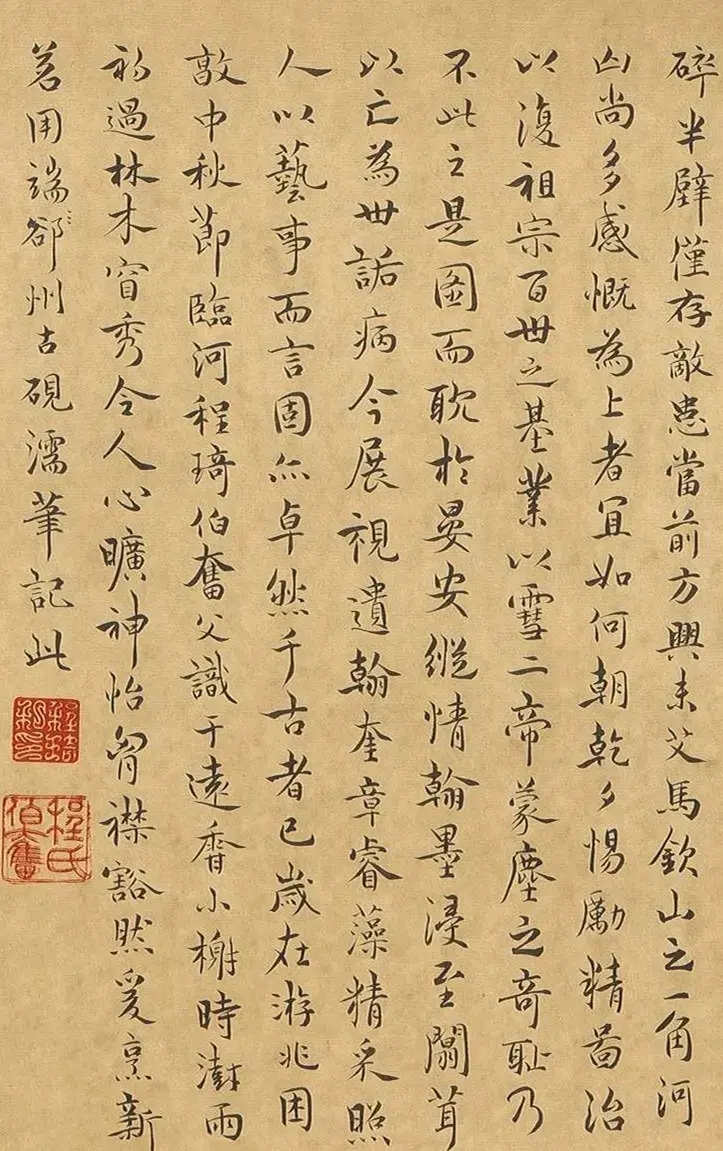 碎半壁僅存敵患當前方興未艾馬欽山之一角河
山尚多感慨為上者宜如何朝乾夕惕勵精啚治
以復祖宗百世之基業以雪二帝蒙塵之奇恥乃
不此之是圖而耽於晏安縱情翰墨浸至闒茸
以亡為世詬病今展視遺翰奎章睿藻精采照
人以藝事而言固亦卓然千古者已歲在游兆困
敦中秋節臨河程琦伯奮父識于遠香小榭時澍雨
初過林木窅秀令人心曠神怡胷襟豁然爰烹新
茗用端谿州古硯濡筆記此
程琦鉨印
程氏伯奮